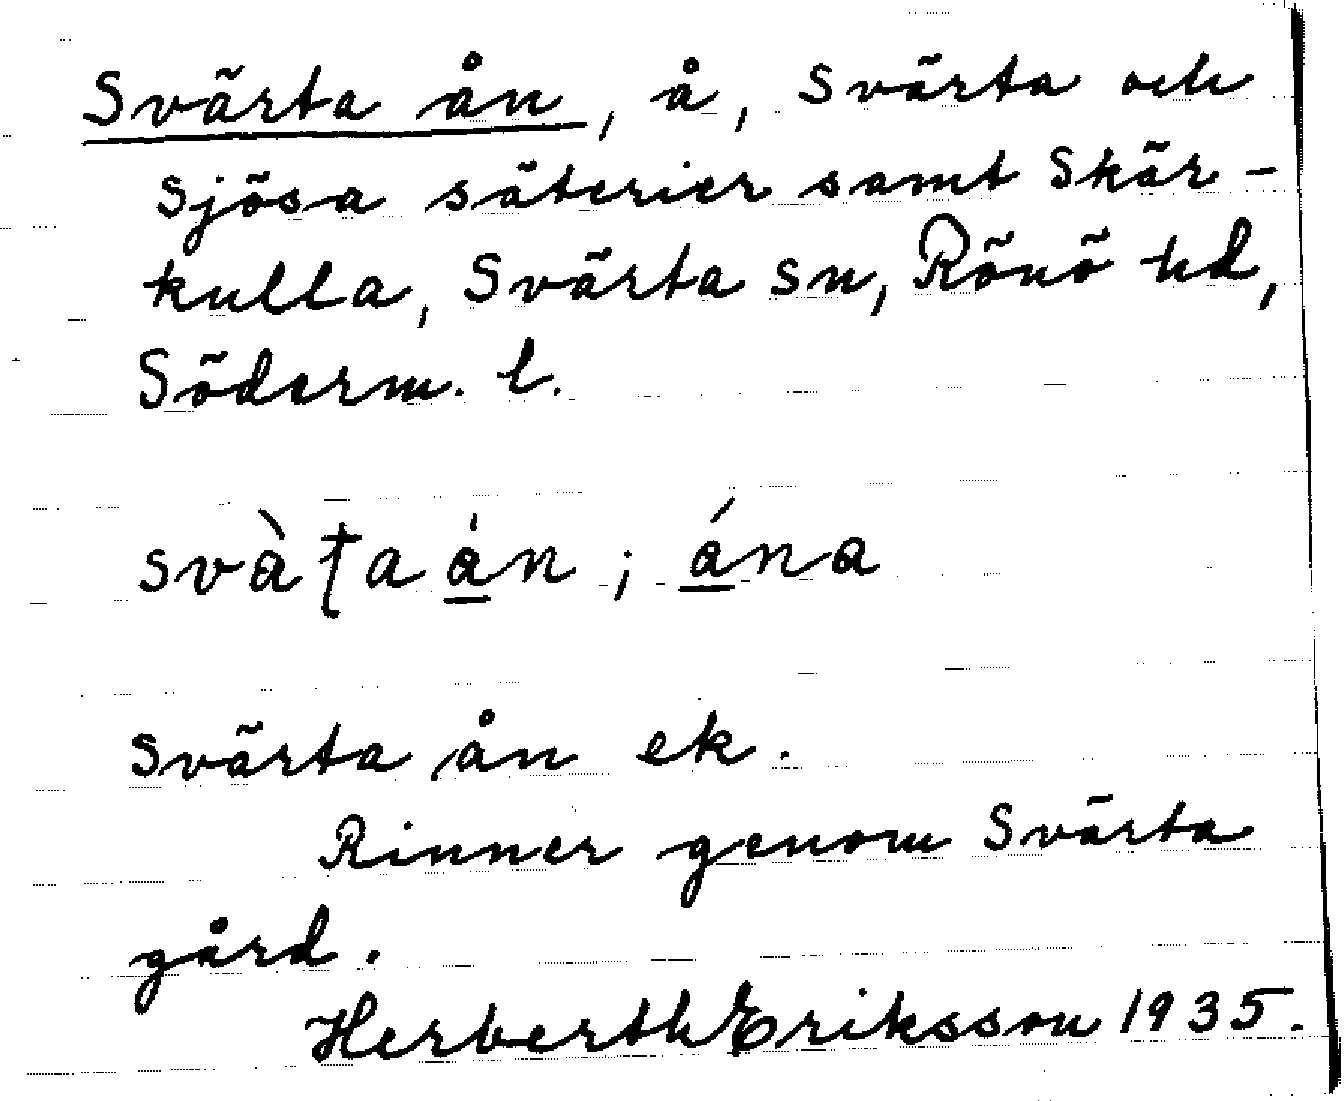 Svärta ån, å, Svärta och
Sjösa säterier samt Skär-
kulla, Svärta sn, Rönö hd,
Söderm. l.
svàʈa á̲n ; á̲na
Svärta ån ek.
Rinner genom Svärta
gård.
Herberth Eriksson 1935.